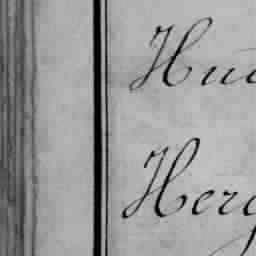 Hud
Herg